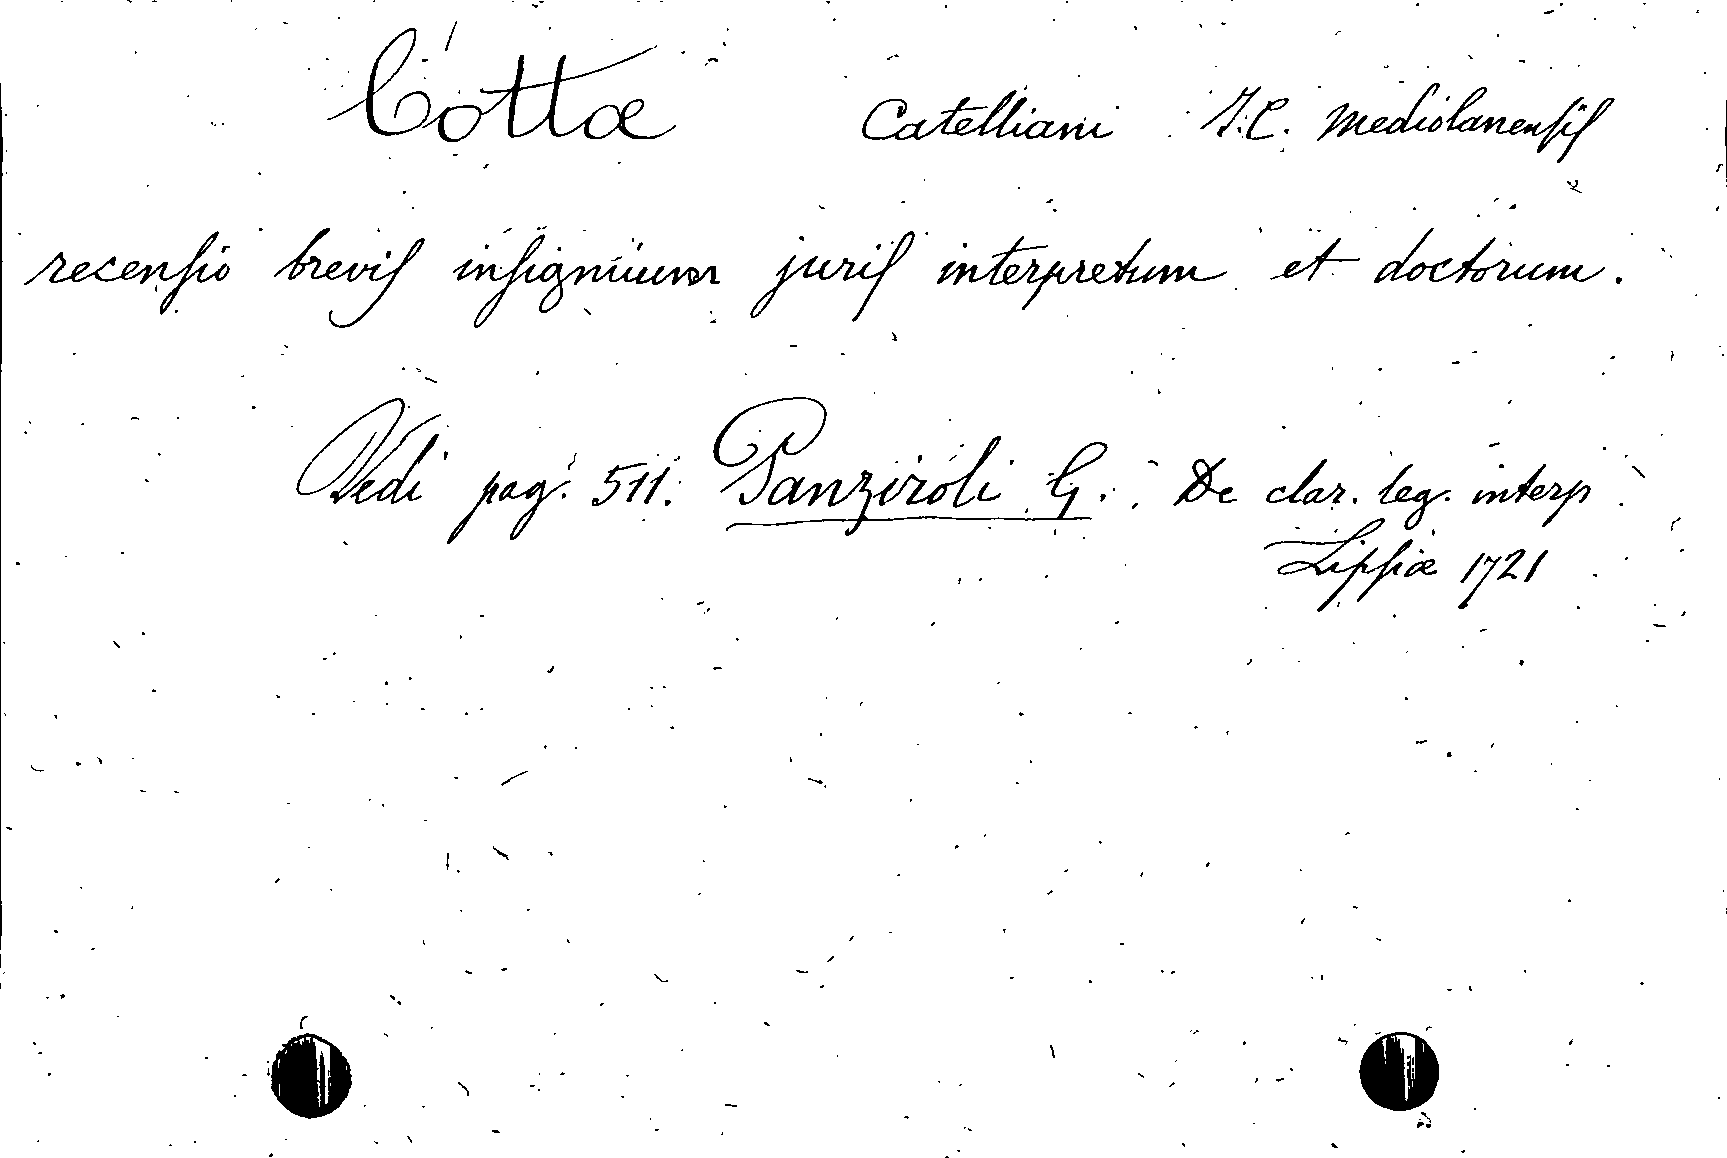 Cottæ Catelliani J.C. Mediolanensis
recensio brevis insignium juris interpretum et doctorum.
Vedi pag. 511. Panziroli G. : De clar. leg. interp.
Lipsiæ 1721